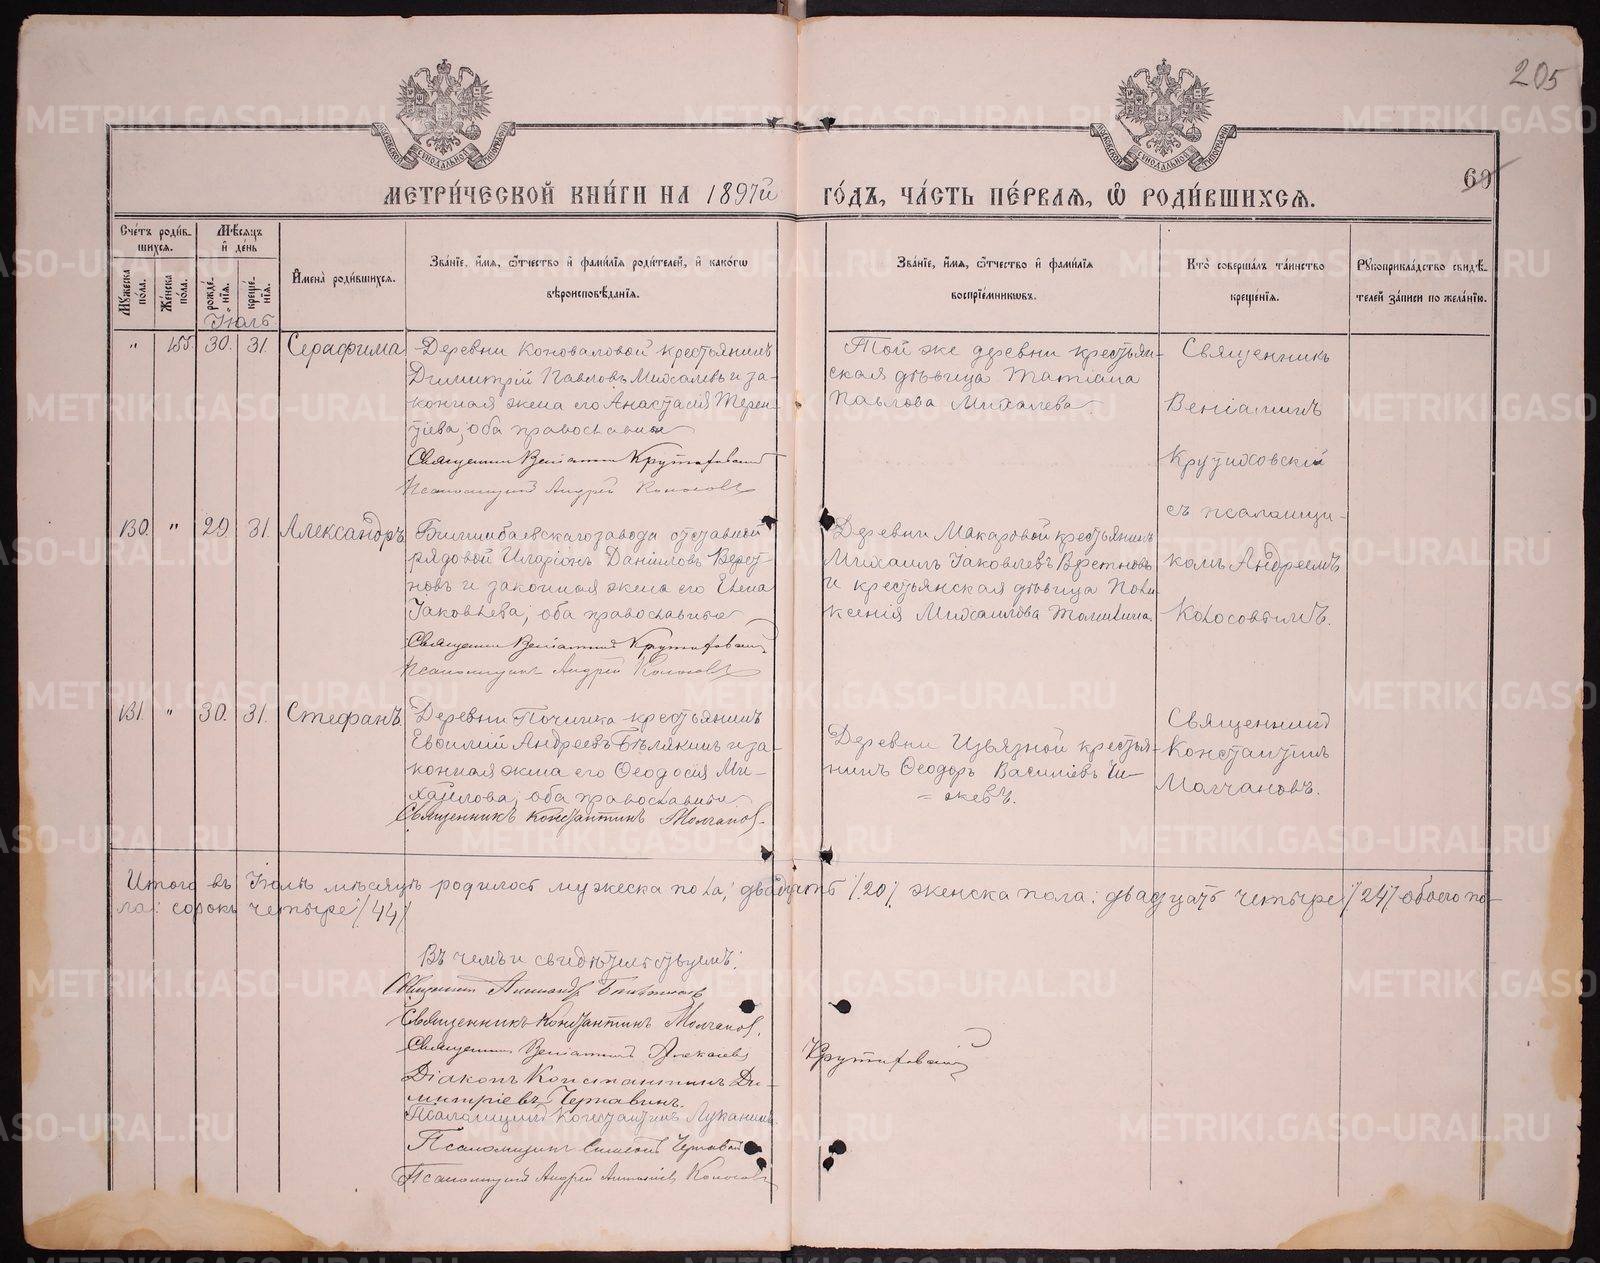 205
69
МЕТРИ́ЧЕСКОЙ КНИ́ГИ НА 1897й ГО́ДЪ, ЧА́СТЬ ПЕ́РВАЯ, Ѡ РОДИ́ВШИХСЯ.
Сче́тъ роди́вшихся.
Му́жеска по́ла.
Же́нска по́ла.
Мѣ́сяцъ и́ де́нь
рожде́нія.
креще́нія.
И́мена̀ роди́вшихся.
Зва́ніе, и́мя, ѻ́тчество и́ фами́лія роди́телей, и́ како́гѡ
вѣроисповѣ́данія.
Зва́ніе, и́мя, ѻ́тчество и́ фами́лія
воспріе́мникѡвъ.
Кто̀ соверша́лъ та́инство
креще́нія.
Рꙋкоприкла́дство свидѣ́-
телей за́писи по жела́нію.
Іюль
" 155. 30. 31. Серафима
Деревни Коноваловой крестьянинъ
Димитрій Павловъ Михалевъ и за-
конная жена его Анастасія Терен-
тіева, оба православные
Священникъ Веніаминъ Крутиховскій
Псаломщикъ Андрей Колосовъ
Той же деревни крестьян-
ская дѣвица Татіана
Павлова Михалева.
Священникъ
Веніаминъ
Крутиховскій
съ псаломщи-
комъ Андреемъ
Колосовымъ.
130. " 29. 31. Александръ
Билимбаевскаго завода отставной
рядовой Иларіонъ Даніиловъ
и законная жена его Елена
Іаковлева, оба православные
Священникъ Веніаминъ Крутиховскій
Псаломщикъ Андрей Колосовъ
Деревни Макаровой крестьянинъ
Михаилъ Іаковлевъ
и крестьянская дѣвица Поли-
ксенія Михаилова
131. " 30. 31. Стефанъ
Деревни Починка крестьянинъ
Евѳимій Андреевъ Бѣлякинъ и за-
конная жена его Ѳеодосія Ми-
хайлова, оба православные.
Священникъ Константинъ Молчановъ.
Деревни Извязной крестья-
нинъ Ѳеодоръ Василіевъ Чи-
= жевъ.
Священникъ
Константинъ
Молчановъ.
Итого въ Іюлѣ мѣсяцѣ родилось мужеска пола: двадцать /20/ женска пола: двадцать четыре /24/ обоего по-
ла: сорокъ четыре /44/
Въ чемъ и свидѣтельствуемъ:
Священникъ Александръ
Священникъ Константинъ Молчановъ.
Священникъ Веніаминъ Алексѣевъ Крутиховскій
Діаконъ Константинъ Ди-
митріевъ Чернавинъ.
Псаломщикъ Константинъ Луканинъ
Псаломщикъ
Псаломщикъ Андрей Колосовъ
METRIKI.GASO-URAL.RU